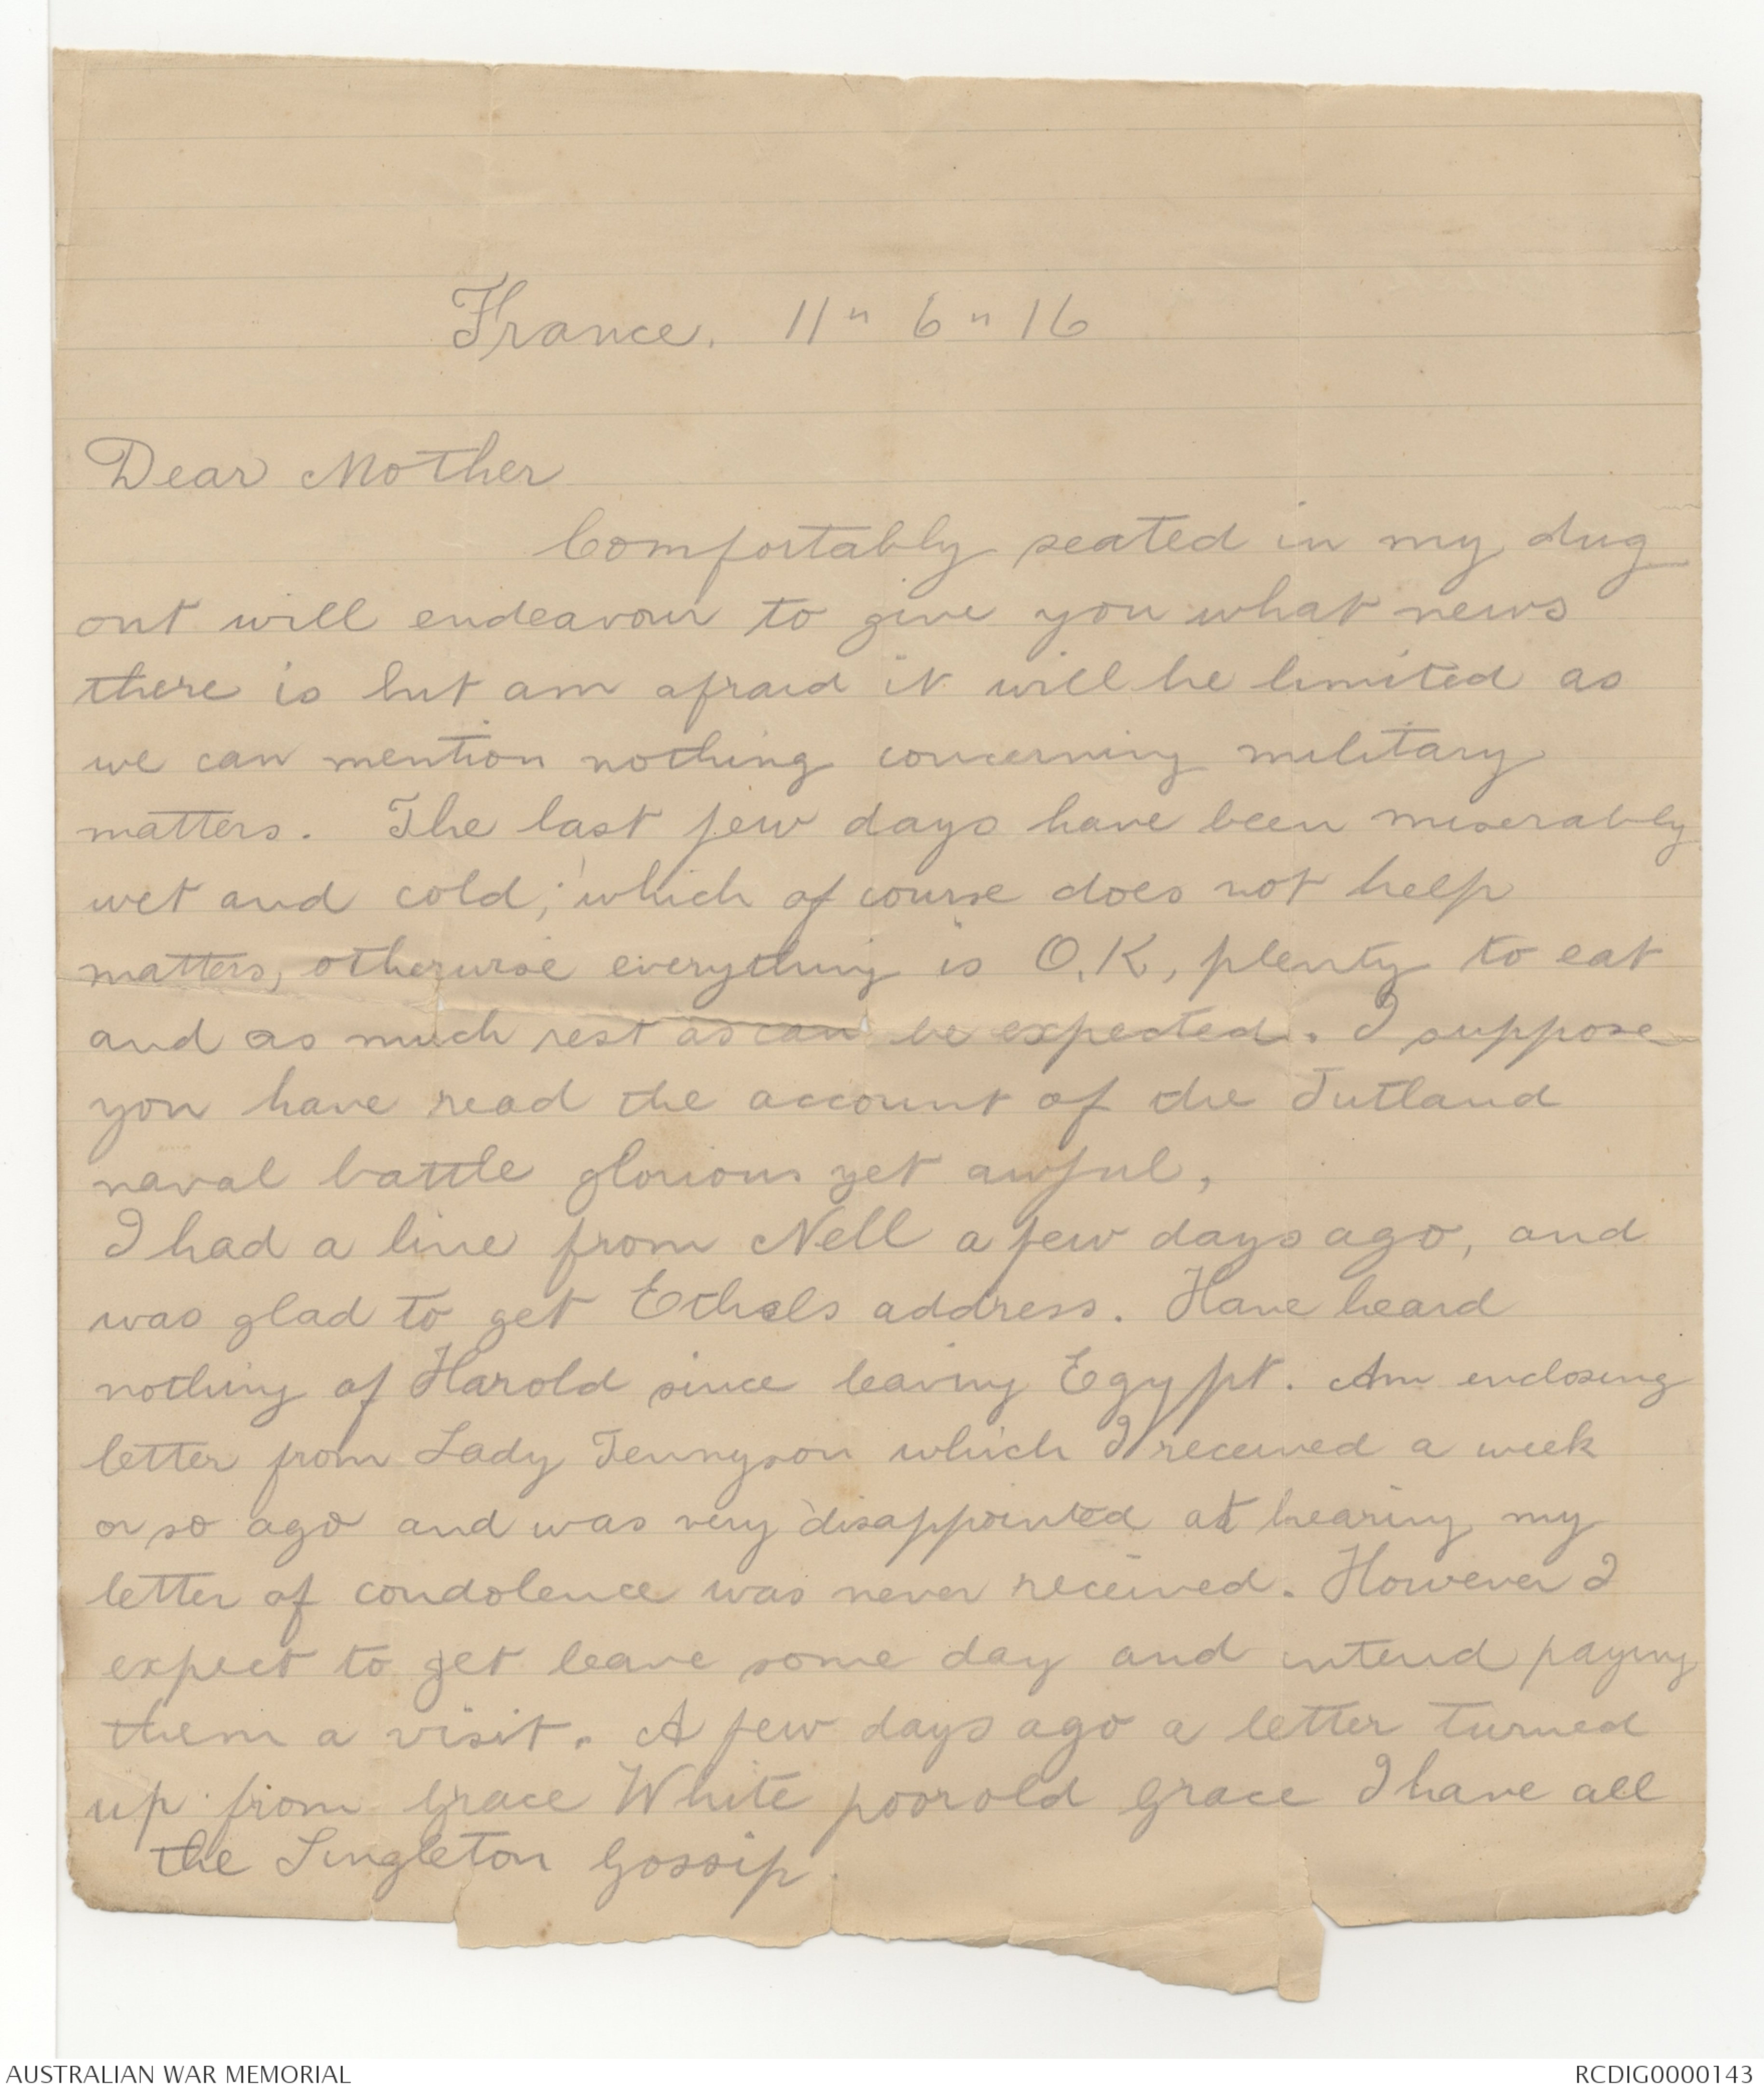 France. 11 " 6 " 16
Dear Mother
Comfortably seated in my dug
out will endeavour to give you what news
there is but am afraid it will be limited as
we can mention nothing concerning military
matters. The last few days have been miserably
wet and cold; which of course does not help
matters, otherwise everything is O.K, plenty to eat
and as much rest as can be expected. I suppose
you have read the account of the Jutland
naval battle glorious yet awful,
I had a line from Nell a few days ago, and
was glad to get Ethels address. Have heard
nothing of Harold since leaving Egypt. Am enclosing
letter from Lady Tennyson which I received a week
or so ago and was very disappointed at hearing my
letter of condolence was never received. However I
expect to get leave some day and intend paying
them a visit. A few days ago a letter turned
up from Grace White poor old Grace I have all
the Singleton Gossip
AUSTRALIAN WAR MEMORIAL
RCDIG0000143